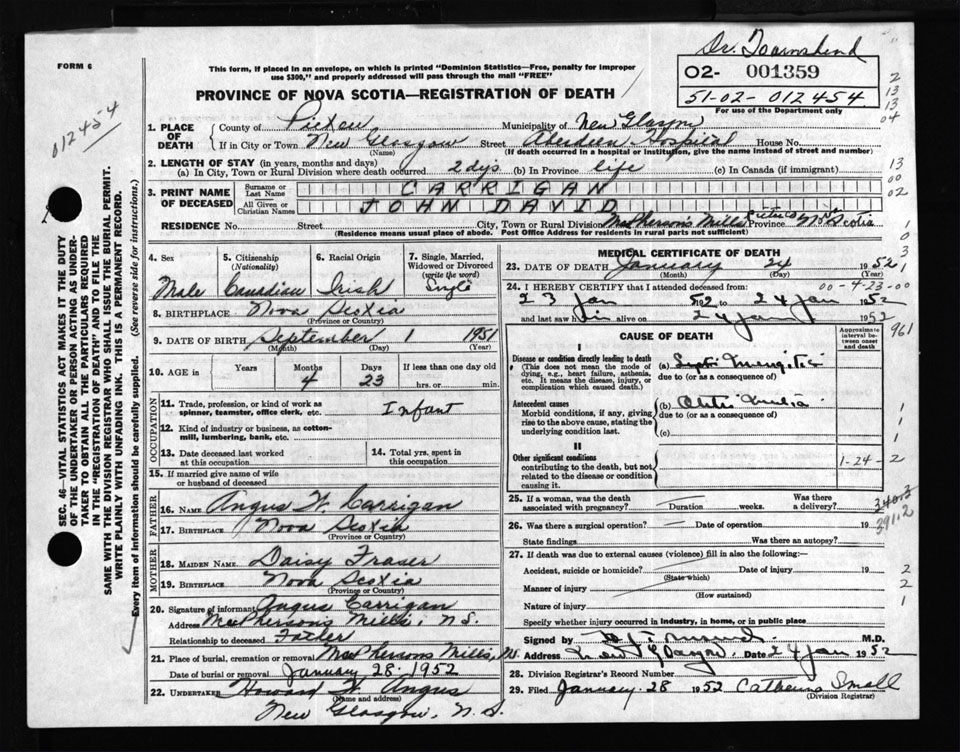 Dr. Townshend
FORM 6
This form, if placed in an envelope, on which is printed "Dominion Statistics—Free, penalty for improper
use $300," and properly addressed will pass through the mail "FREE"
02- 001359
51-02-012454
For use of the Department only
PROVINCE OF NOVA SCOTIA—REGISTRATION OF DEATH
012454
1. PLACE OF DEATH
County of Pictou Municipality of New Glasgow
If in City or Town New Glasgow Street Aberdeen Hospital House No.
(Name) (If death occurred in a hospital or institution, give the name instead of street and number)
2. LENGTH OF STAY (in years, months and days)
(a) In City, Town or Rural Division where death occurred 2 dys (b) In Province life (c) In Canada (if immigrant)
3. PRINT NAME OF DECEASED
Surname or Last Name CARRIGAN
All Given or Christian Names JOHN DAVID
RESIDENCE No. Street City, Town or Rural Division MacPhersons Mills Pictou Co Province N. Scotia
(Residence means usual place of abode. Post Office Address for residents in rural parts not sufficient)
4. Sex
Male
5. Citizenship
(Nationality)
Canadian
6. Racial Origin
Irish
7. Single, Married, Widowed or Divorced
(write the word)
Single
8. BIRTHPLACE Nova Scotia
(Province or Country)
9. DATE OF BIRTH September 1 1951
(Month) (Day) (Year)
10. AGE in
Years Months Days If less than one day old
4 23 hrs. or min.
OCCUPATION
11. Trade, profession, or kind of work as spinner, teamster, office clerk, etc. Infant
12. Kind of industry or business, as cotton-mill, lumbering, bank, etc.
13. Date deceased last worked at this occupation
14. Total yrs. spent in this occupation
15. If married give name of wife or husband of deceased
FATHER
16. NAME Angus W. Carrigan
17. BIRTHPLACE Nova Scotia
(Province or Country)
MOTHER
18. MAIDEN NAME Daisy Fraser
19. BIRTHPLACE Nova Scotia
(Province or Country)
20. Signature of informant Angus Carrigan
Address MacPhersons Mills, N.S.
Relationship to deceased Father
21. Place of burial, cremation or removal MacPhersons Mills, N.S.
Date of burial or removal January 28, 1952
22. UNDERTAKER Howard W. Angus
(Name and address)
New Glasgow, N.S.
MEDICAL CERTIFICATE OF DEATH
23. DATE OF DEATH January 24 1952
(Month) (Day) (Year)
24. I HEREBY CERTIFY that I attended deceased from: 00-4-23-00
23 Jan 52 to 24 Jan 1952
and last saw him alive on 24 Jan 1952
CAUSE OF DEATH
Approximate interval between onset and death
I
Disease or condition directly leading to death
(This does not mean the mode of dying, e.g., heart failure, asthenia, etc. It means the disease, injury, or complication which caused death.)
(a) Septic Meningitis
due to (or as a consequence of)
Antecedent causes
Morbid conditions, if any, giving rise to the above cause, stating the underlying condition last.
(b) Otitis Media
due to (or as a consequence of)
(c)
II
Other significant conditions
contributing to the death, but not related to the disease or condition causing it.
1-24-2
25. If a woman, was the death associated with pregnancy? Duration weeks. Was there a delivery?
340.3
26. Was there a surgical operation? Date of operation 19
391.2
State findings Was there an autopsy?
27. If death was due to external causes (violence) fill in also the following:—
Accident, suicide or homicide? Date of injury 19
(State which)
Manner of injury
(How sustained)
Nature of injury
Specify whether injury occurred in industry, in home, or in public place
Signed by M.D.
Address New Glasgow Date 24 Jan 1952
28. Division Registrar's Record Number
29. Filed January 28 1952 Catherine Small
(Division Registrar)
SEC. 46—VITAL STATISTICS ACT MAKES IT THE DUTY
OF THE UNDERTAKER OR PERSON ACTING AS UNDER-
TAKER TO OBTAIN ALL THE PARTICULARS REQUIRED
IN THE "REGISTRATION OF DEATH" AND TO FILE THE
SAME WITH THE DIVISION REGISTRAR WHO SHALL ISSUE THE BURIAL PERMIT.
WRITE PLAINLY WITH UNFADING INK. THIS IS A PERMANENT RECORD.
Every item of information should be carefully supplied. (See reverse side for instructions.)
2
13
13
04
13
00
02
1
0
3
1
961
1
1
1
2
2
2
1